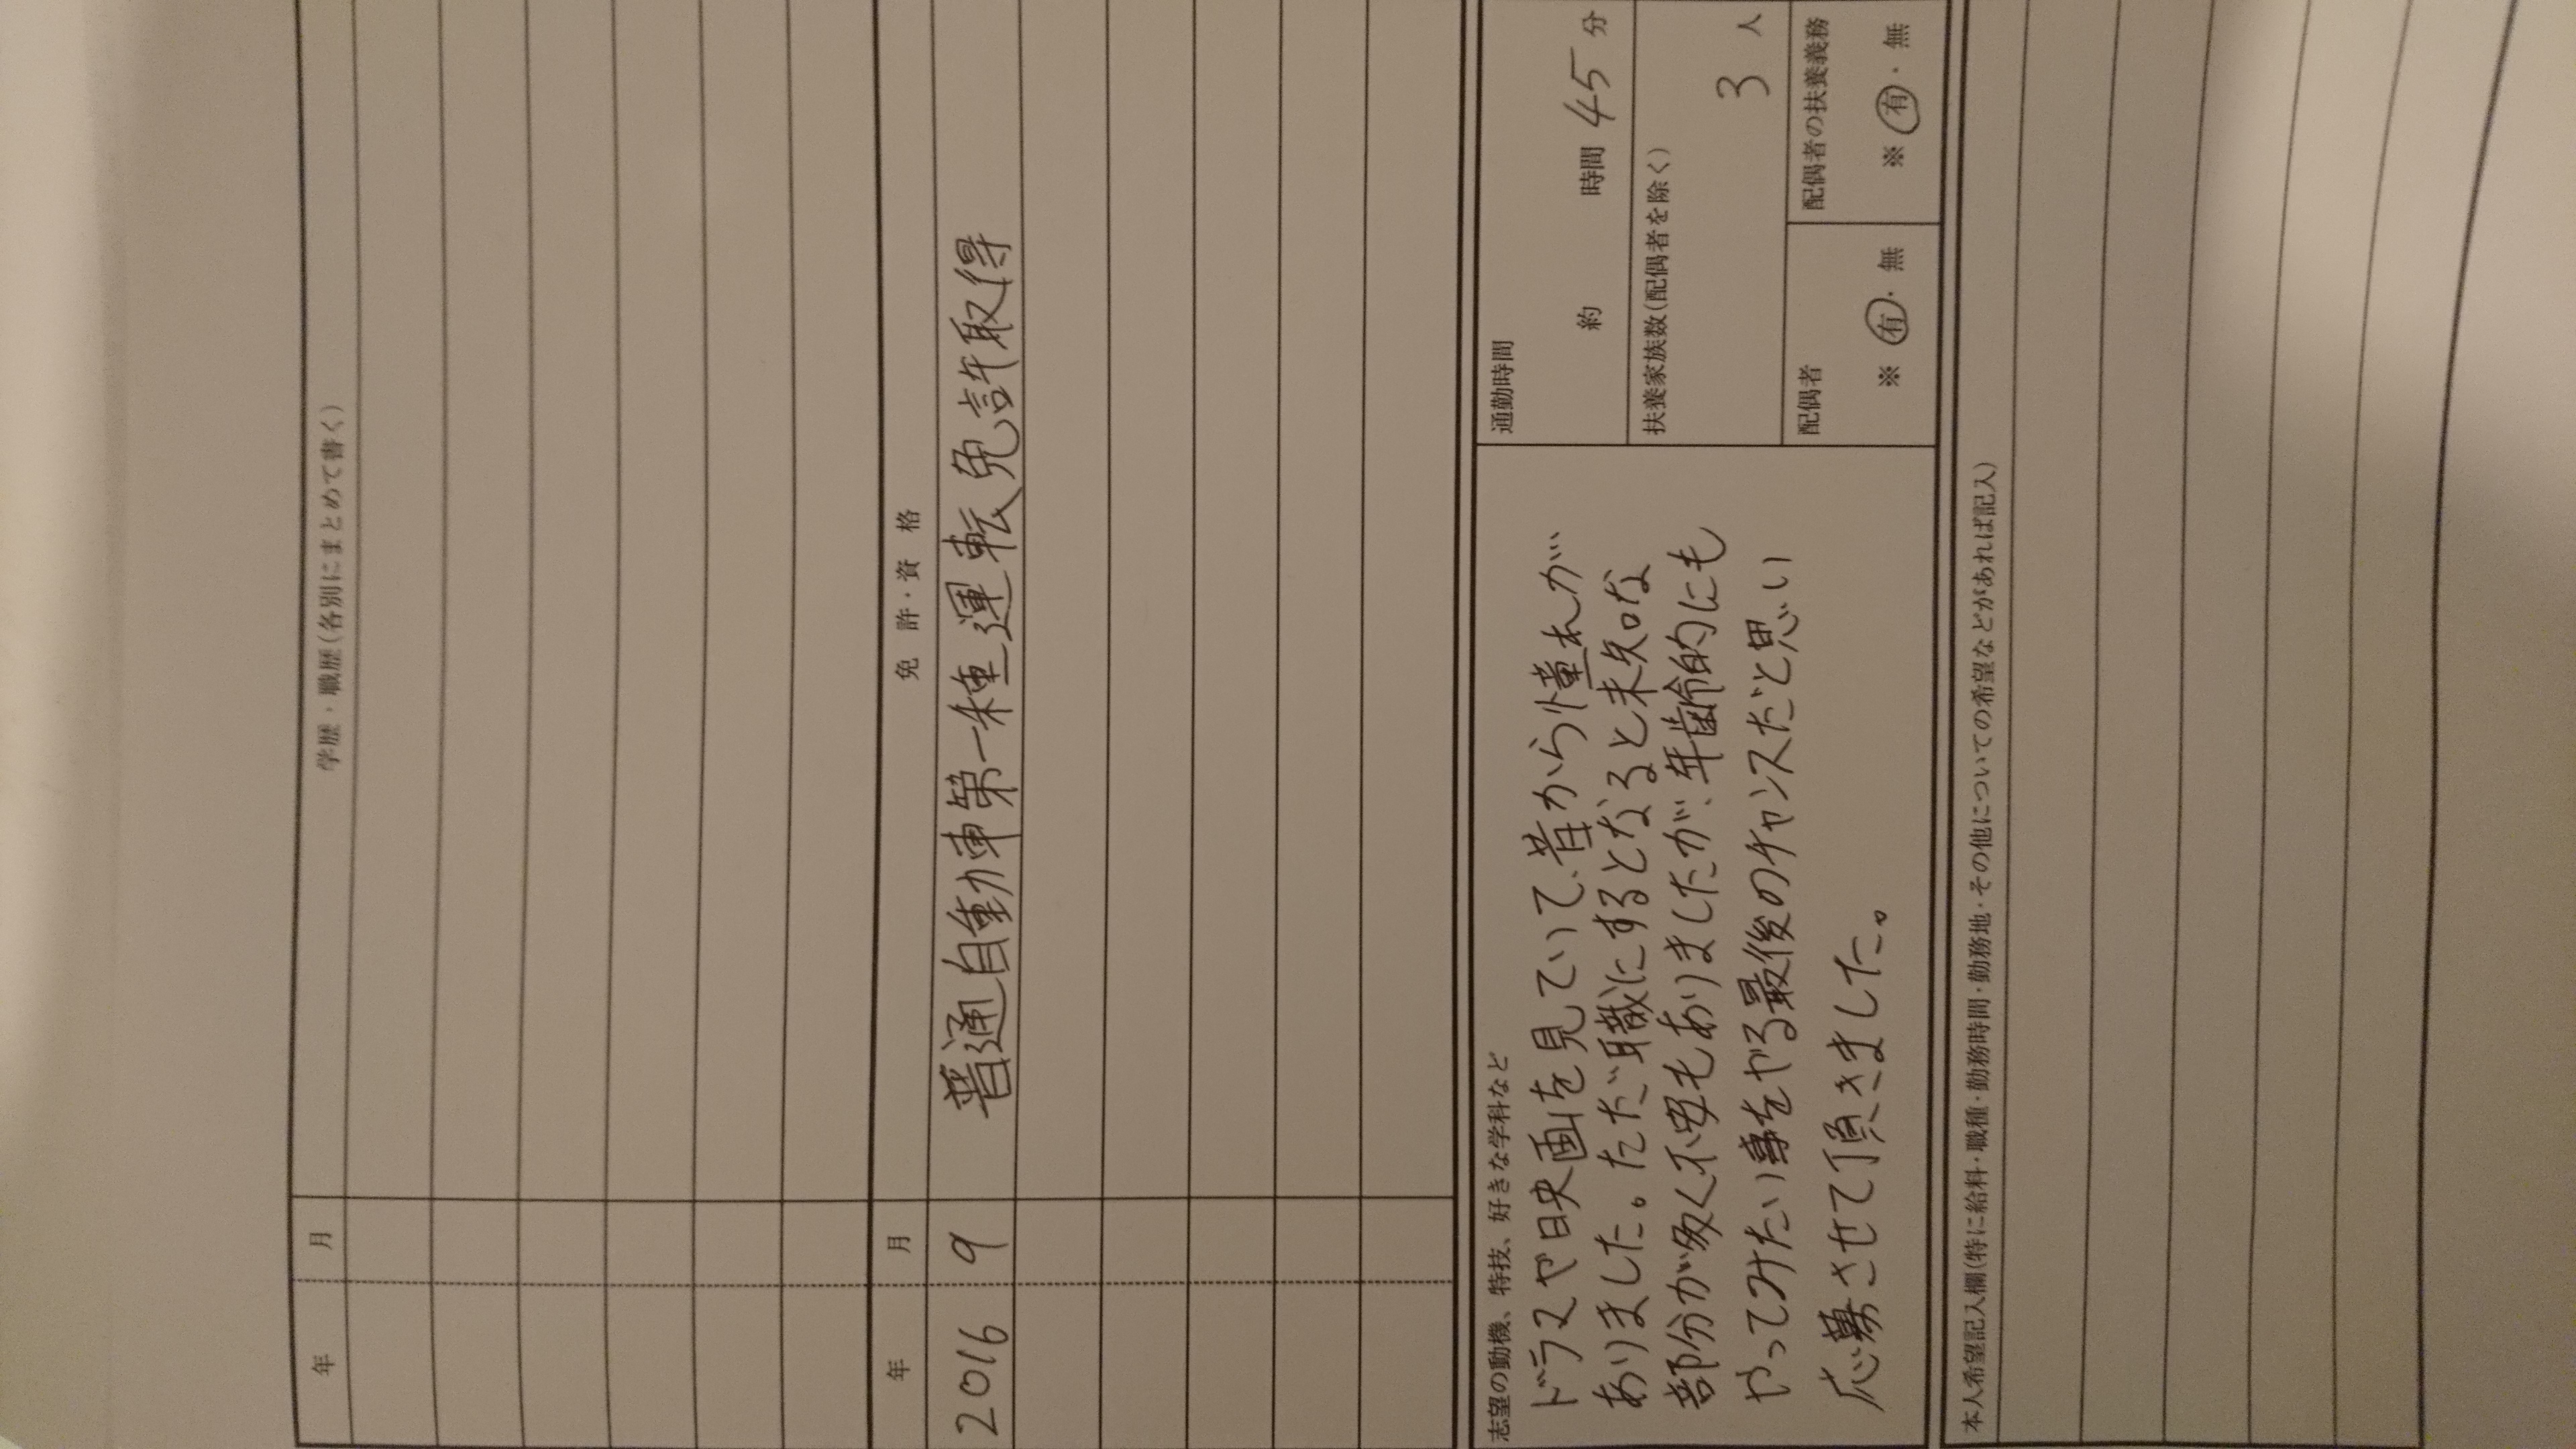 年 月 学歴・職歴(各別にまとめて書く)
年 月 免許・資格
2016 9 普通自動車第一種運転免許取得
志望の動機、特技、好きな学科など
ドラマや映画を見ていて、昔から憧れが
ありました。ただ職にするとなると未知な
部分が多く不安もありましたが、年齢的にも
やってみたい事をやる最後のチャンスだと思い
応募させて頂きました。
通勤時間
約 時間 45 分
扶養家族数(配偶者を除く)
3 人
配偶者
※ 有・無
配偶者の扶養義務
※ 有・無
本人希望記入欄(特に給料・職種・勤務時間・勤務地・その他についての希望などがあれば記入)